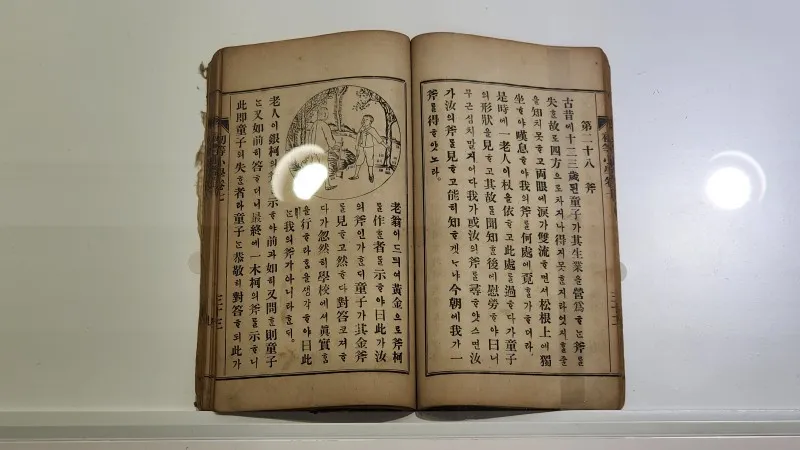 第二十八 斧
古昔에十二三歲된童子가其生業을營爲ᄒᆞᄂᆞᆫ斧를
失ᄒᆞᆫ故로四方으로차지나得지못ᄒᆞᆫ지라엇지ᄒᆞᆯ줄
을知치못ᄒᆞ고兩眼에淚가雙流ᄒᆞ면서松根上에獨
坐ᄒᆞ야嘆息ᄒᆞ야我의斧를何處에覓ᄒᆞᆯ가ᄒᆞ더라
是時에一老人이杖을依ᄒᆞ고此處를過ᄒᆞ다가童子
의形狀을見ᄒᆞ고其故를聞知ᄒᆞᆫ後에慰勞ᄒᆞ야曰너
무근심치말지어다我가或汝의斧를尋ᄒᆞ얏스면汝
가汝의斧를見ᄒᆞ고能히知ᄒᆞ겟ᄂᆞ냐今朝에我가一
斧를得ᄒᆞ얏노라
老翁이드듸여黃金으로斧柯
를作ᄒᆞᆫ者를示ᄒᆞ야曰此가汝
의斧인가ᄒᆞᆫᄃᆡ童子가其金斧
를見ᄒᆞ고然ᄒᆞ다對答코져ᄒᆞ
다가忽然히學校에서眞實ᄒᆞᆷ
을行ᄒᆞ라ᄒᆞᆷ을生각ᄒᆞ야曰此
ᄂᆞᆫ我의斧가아니라ᄒᆞᆫᄃᆡ
老人이銀柯의斧를示ᄒᆞ야前과如히又問ᄒᆞᆫ則童子
ᄂᆞᆫ又如前히答ᄒᆞ더니最終에一木柯의斧를示ᄒᆞ니
此卽童子의失ᄒᆞᆫ者라童子ᄂᆞᆫ恭敬히對答ᄒᆞ되此가
初等小學卷七
三十三